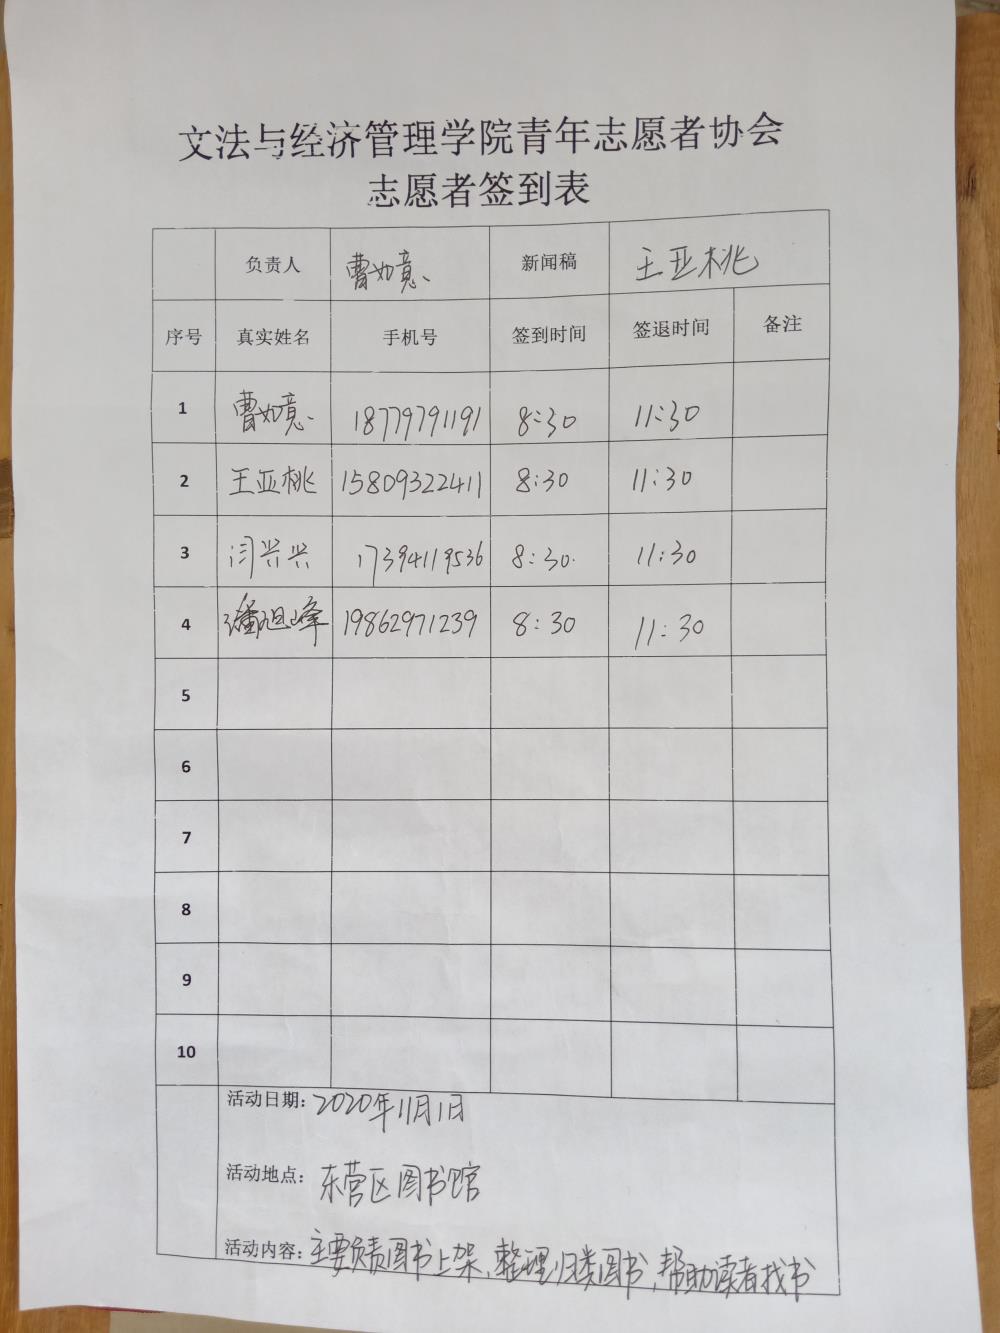 文法与经济管理学院青年志愿者协会
志愿者签到表
负责人 曹如意 新闻稿 王亚桃
序号 真实姓名 手机号 签到时间 签退时间 备注
1 曹如意 18779791191 8:30 11:30
2 王亚桃 15809322411 8:30 11:30
3 闫兴兴 17394119536 8:30 11:30
4 潘旭峰 19862971239 8:30 11:30
5
6
7
8
9
10
活动日期：2020年11月1日
活动地点：东营区图书馆
活动内容：主要负责图书上架、整理归类图书，帮助读者找书